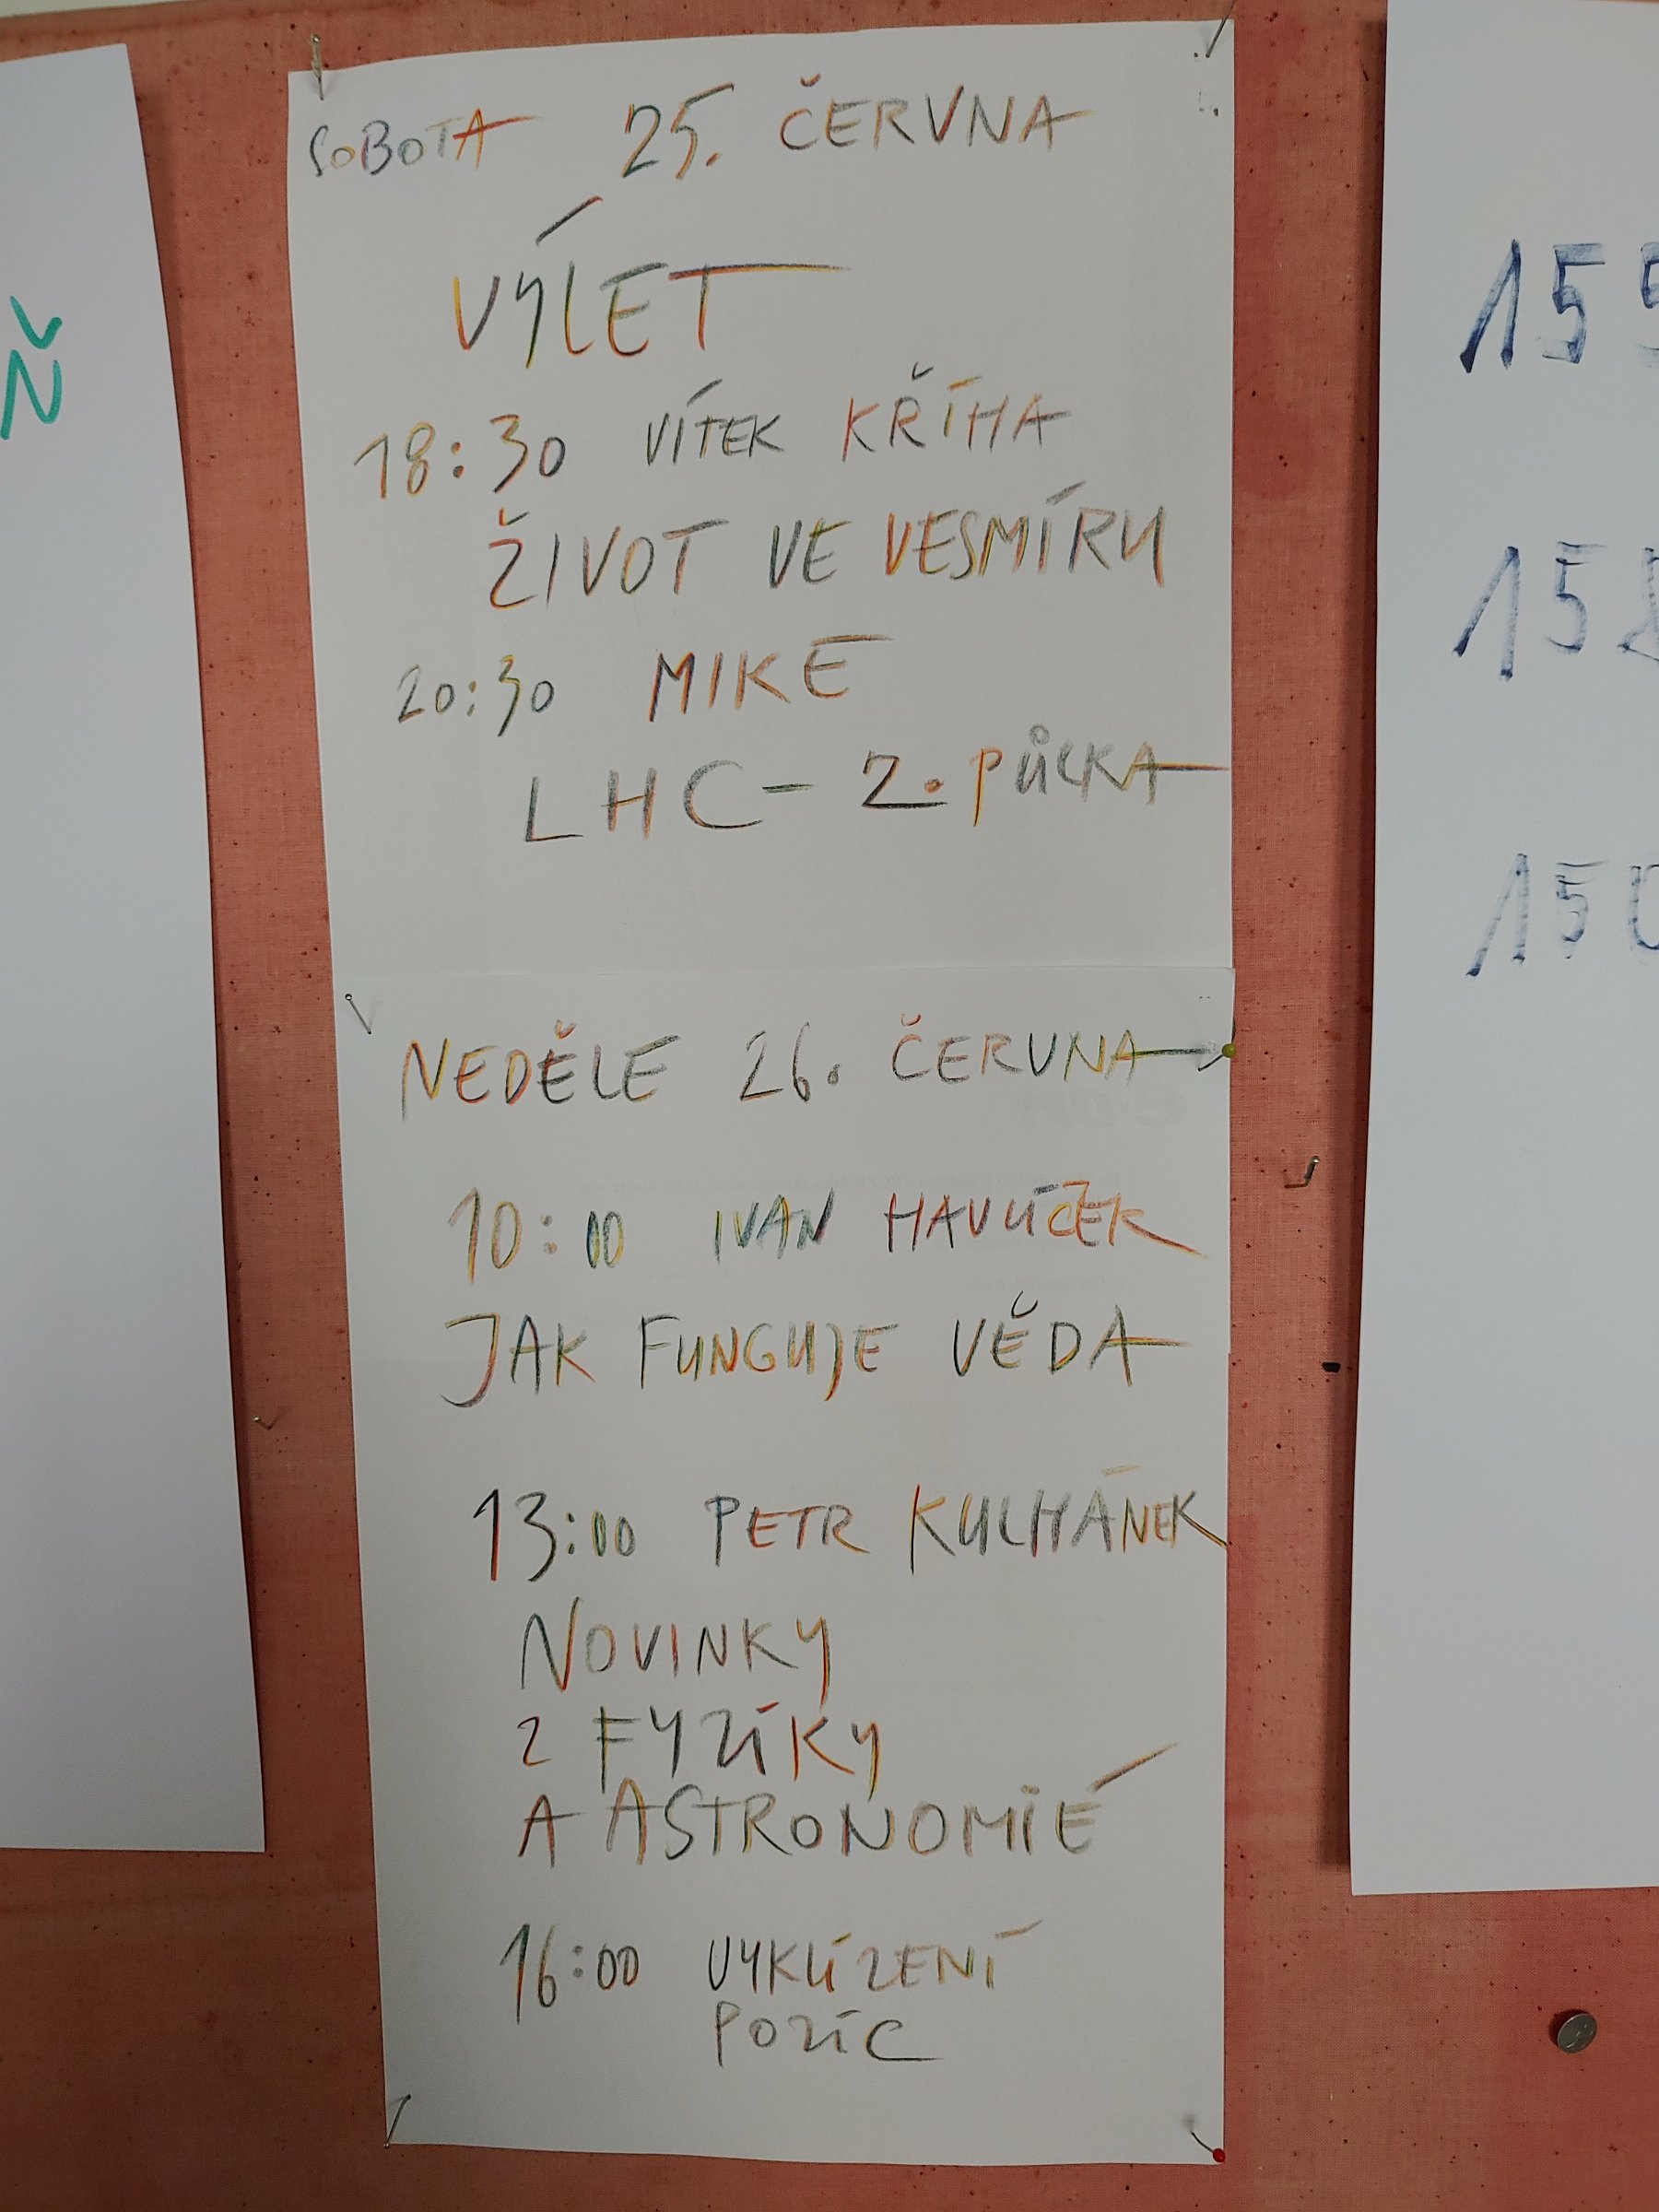 SOBOTA 25. ČERVNA
VÝLET
18:30 VÍTEK KŘÍHA
ŽIVOT VE VESMÍRU
20:30 MIKE
LHC – 2. PŮLKA
NEDĚLE 26. ČERVNA
10:00 IVAN HAVLÍČEK
JAK FUNGUJE VĚDA
13:00 PETR KULHÁNEK
NOVINKY
Z FYZIKY
A ASTRONOMIE
16:00 VYKLÍZENÍ
POZIC
Ň
155
15
150